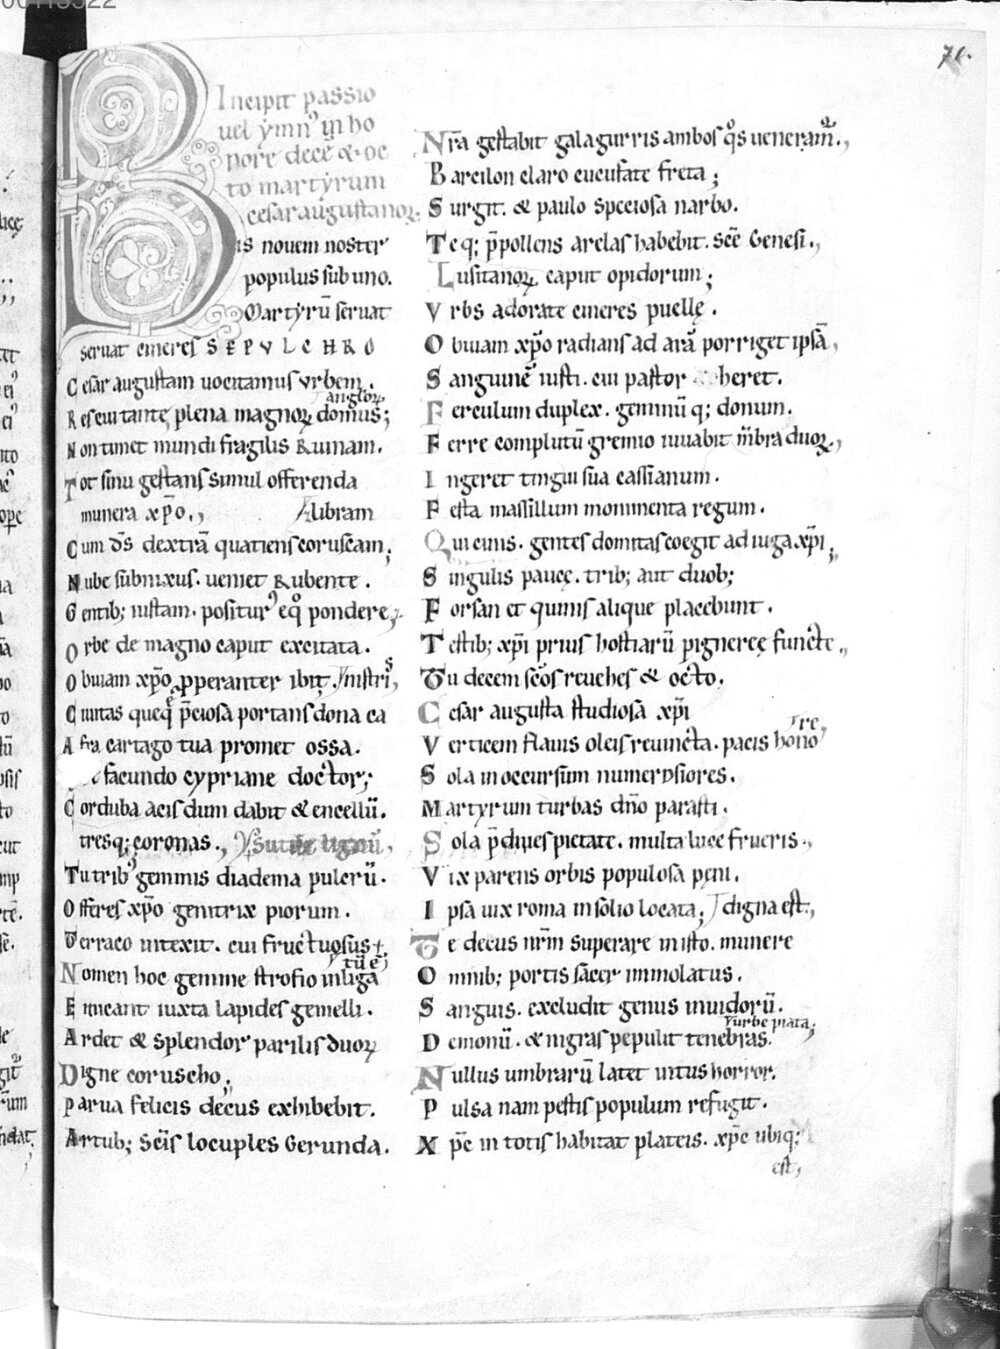 71.
Incipit passio
uel ẏmnꝰ in ho
nore decē & oc
to martẏrum
cesaraugustanoꝝ.
Bis nouem noster
populus sub uno.
Martyrū seruat
seruat cineres SEPVLCHRO
Cesar augustam uocitamus vrbem.
Res cui tante; plena magnoꝝ domus; angloꝝ
Non timet mundi fragilis Ruinam.
Tot sinu gestans simul offerenda
munera xp̄o.,
Cum d̄s dextrā quatiens coruscam; / libram
Nube subnixus. ueniet Rubente.
Gentib; iustam. positurꝰ eq̊ pondere,
Orbe de magno caput excitata.
Obuiam xp̄o ꝓperanter ibit, / nistris,
Ciuitas queq̄ p̄ciosa portans dona ca
Afra cartago tua promet ossa.
facundo cypriane doctor;
Corduba acisclum dabit & encellū.
tresq; coronas.,
Tu tribꝰ gemmis diadema pulcrū.
Offeres xp̄o genitrix piorum.
Terraco intexit. cui fructuosus +
Nomen hoc gemme strofio inliga / tū ē;
Emicant iuxta lapides gemelli.
Ardet & splendor parilis duoꝝ
Digne corusco;
Parua felicis decus exhibebit.
Artub; scīs locuples Gerunda.
Nr̄a gestabit galagurris ambos q̊s ueneram̄.,
Barcilon claro cucufate freta;
Surgit. & paulo speciosa narbo.
Teq; p̄pollens arelas habebit. scē Genesi.,
Lusitanoꝝ caput opidorum;
Vrbs adorate cineres puellę.
Obuiam xp̄o radians ad arā porriget ipsā,
Sanguinē iusti. cui pastor heret.
Ferculum duplex. geminū q; donum.
Ferre complutū gremio iuuabit m̄bra duoꝝ.,
Ingeret tingui sua cassianum.
Festa massillum monimenta regum.
Qui cinis. gentes domitas coegit ad iuga xp̄i;
Singulis paucę. trib; aut duob;
Forsan et quinis alique placebunt.
Testib; xp̄i prius hostiarū pignerę functe.,
Tu decem scōs reuehes & octo.
Cesar augusta studiosa xp̄i
Verticem flauis oleis reuincta. pacis hono / re,
Sola in occursum numerosiores.
Martyrum turbas dn̄o parasti.
Sola p̄diues pietate. multa luce frueris.,
Vix parens orbis populosa peni.
Ipsa uix roma in solio locata, / digna est.,
Te decus nr̄m superare in isto. munere
Omnib; portis sacer immolatus.
Sanguis. excludit genus inuidorū.
Demonū. & nigras pepulit tenebras. / vrbe piata;
Nullus umbrarū latet intus horror.
Pulsa nam pestis populum refugit.
Xp̄c in totis habitat plateis. xp̄c ubiq;
est,